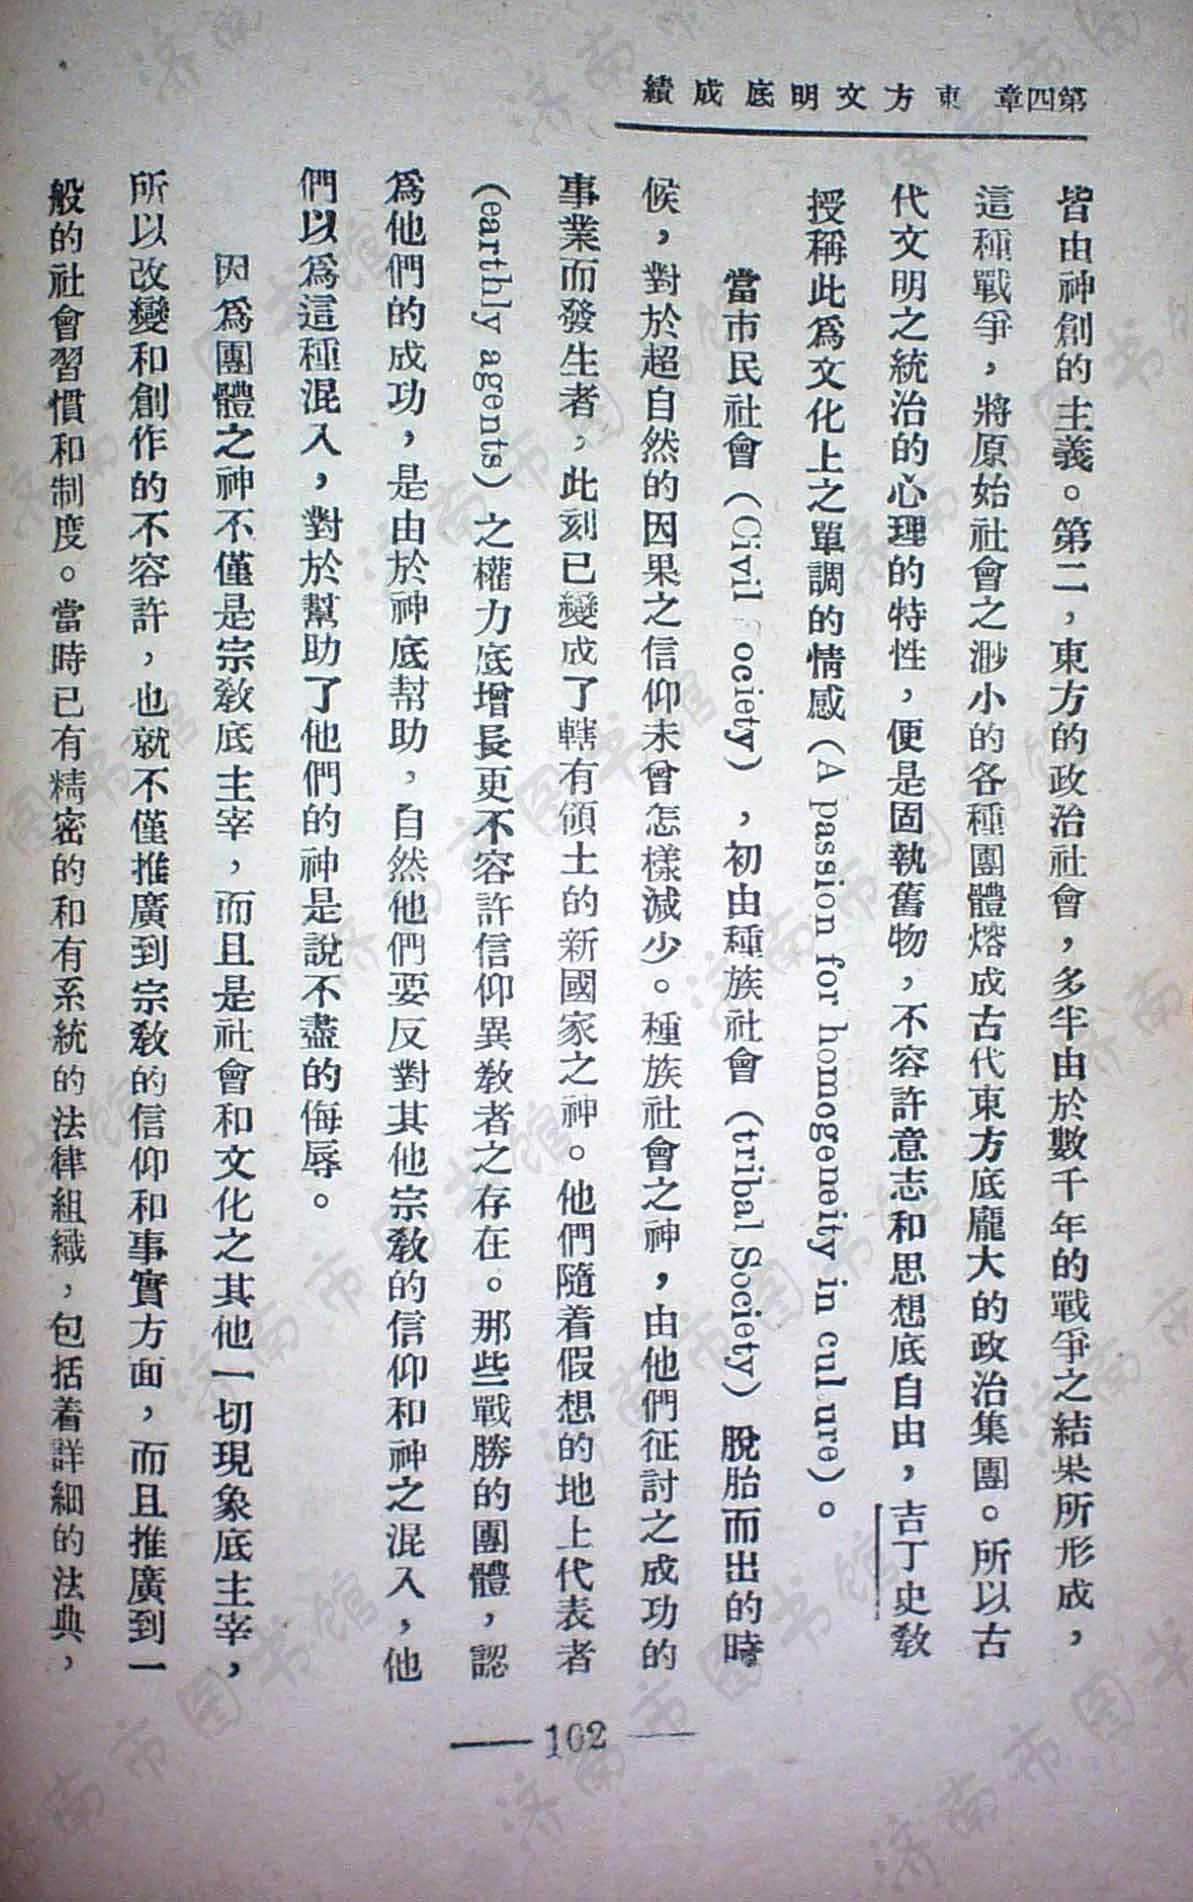 第四章 東方文明底成績
皆由神創的主義。第二，東方的政治社會，多半由於數千年的戰爭之結果所形成，
這種戰爭，將原始社會之渺小的各種團體熔成古代東方底龐大的政治集團。所以古
代文明之統治的心理的特性，便是固執舊物，不容許意志和思想底自由，吉丁史教
授稱此爲文化上之單調的情感（A passion for homogeneity in cul ure）。
當市民社會（Civil ociety），初由種族社會（tribal Society）脫胎而出的時
候，對於超自然的因果之信仰未曾怎樣減少。種族社會之神，由他們征討之成功的
事業而發生者，此刻已變成了轄有領土的新國家之神。他們隨着假想的地上代表者
（earthly agents）之權力底增長更不容許信仰異教者之存在。那些戰勝的團體，認
爲他們的成功，是由於神底幫助，自然他們要反對其他宗教的信仰和神之混入，他
們以爲這種混入，對於幫助了他們的神是說不盡的侮辱。
因爲團體之神不僅是宗教底主宰，而且是社會和文化之其他一切現象底主宰，
所以改變和創作的不容許，也就不僅推廣到宗教的信仰和事實方面，而且推廣到一
般的社會習慣和制度。當時已有精密的和有系統的法律組織，包括着詳細的法典，
— 102 —
济南市图书馆